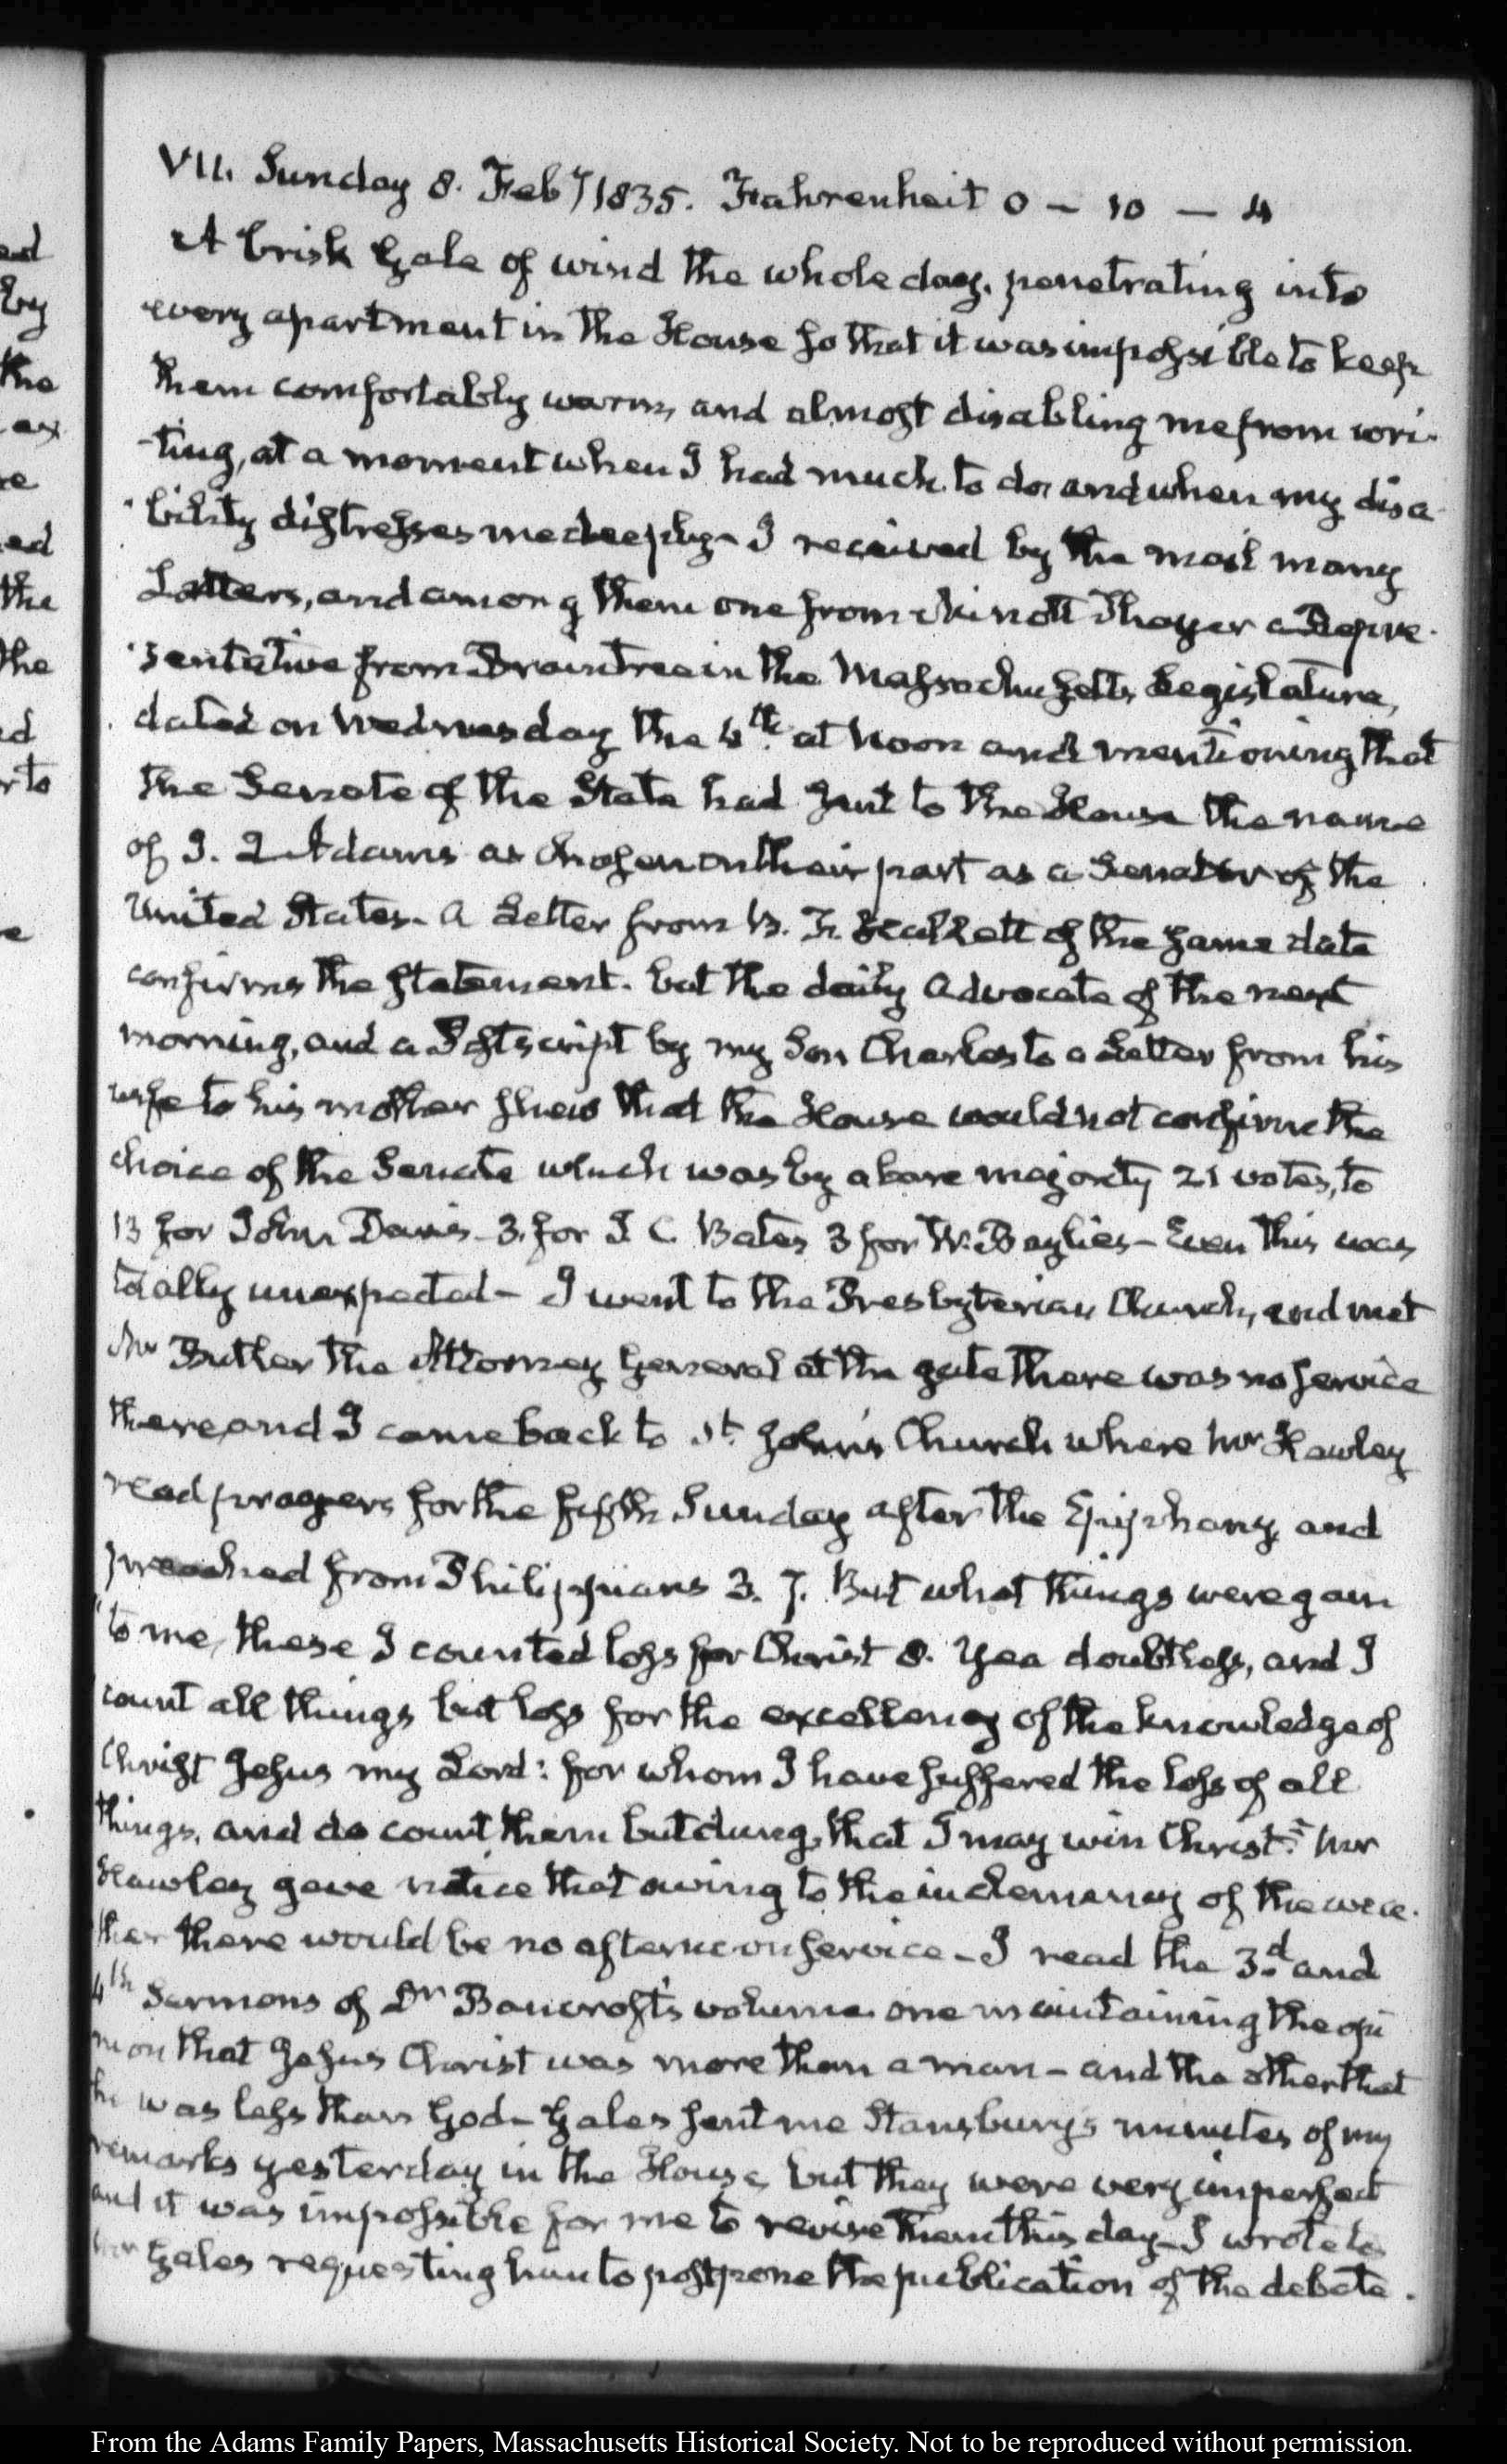 VII. Sunday 8. Feby 1835. Fahrenheit 0 – 10 – 4
A brisk Gale of wind the whole day, penetrating into
every apartment in the House so that it was impossible to keep
them comfortably warm, and almost disabling me from wri-
-ting, at a moment when I had much to do, and when my disa-
-bility distresses me deeply– I received by the mail many
Letters, and among them one from Minott Thayer a Repre-
-sentative from Braintree in the Massachusetts Legislature,
dated on Wednesday the 4th. at Noon and mentioning that
the Senate of the State had sent to the House the name
of J. Q Adams as chosen on their part as a Senator of the
United States– A Letter from B. F. Hallett of the same date
confirms the statement. but the daily Advocate of the next
morning, and a Postscript by my Son Charles to a Letter from his
wife to his mother shew that the House would not confirm the
choice of the Senate which was by a bare majority 21 votes, to
13 for John Davis– 3. for I C. Bates 3 for W. Baylies– Even this was
totally unexpected– I went to the Presbyterian Church, and met
Mr Butler the Attorney General at the gate there was no service
there, and I came back to St. John's Church where Mr Hawley
read prayers for the fifth Sunday after the Epiphany, and
preached from Philippians 3. 7. But what things were gain
"to me, these I counted loss for Christ 8. Yea doubtless, and I
count all things but loss for the excellency of the knowledge of
Christ Jesus my Lord: for whom I have suffered the loss of all
things, and do count them but dung, that I may win Christ." Mr
Hawley gave notice that owing to the inclemency of the wea-
ther there would be no afternoon service– I read the 3.d and
4th Sermons of Dr Bancroft's volume. one maintaining the opi
nion that Jesus Christ was more than a man– and the other that
he was less than God– Gales sent me Stansbury's minutes of my
remarks yesterday in the House, but they were very imperfect
and it was impossible for me to revise them this day– I wrote to
Mr Gales requesting him to postpone the publication of the debate.
ed
by
the
ax
re
ed
the
the
d
r to
e
From the Adams Family Papers, Massachusetts Historical Society. Not to be reproduced without permission.